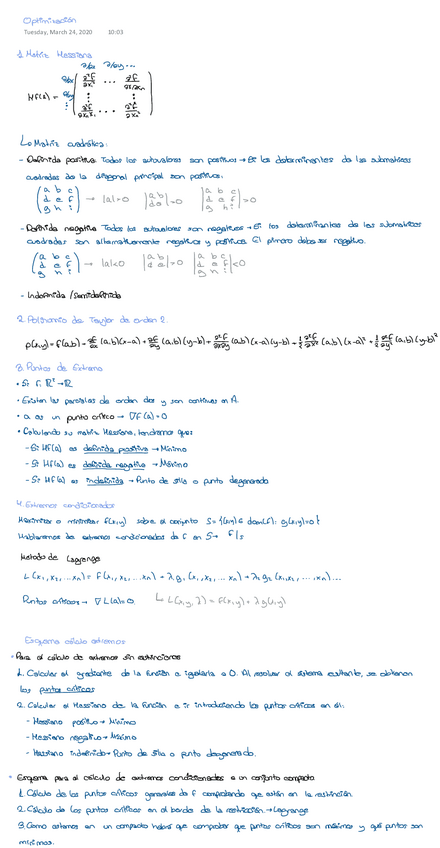 Optimización
Tuesday, March 24, 2020 10:03
1. Matriz Hessiana
∂/∂x ∂/∂y ...
Hf(x) =
Lo Matriz cuadrática:
- Definida positiva: Todos los autovalores son positivos → Si los determinantes de las submatrices
cuadradas de la diagonal principal son positivos.
(a b c / d e f / g h i) → |a|>0 |a b / d e|>0 |a b c / d e f / g h i|>0
- Definida negativa: Todos los autovalores son negativos → Si los determinantes de las submatrices
cuadradas son alternativamente negativos y positivos. El primero debe ser negativo.
(a b c / d e f / g h i) → |a|<0 |a b / d e|>0 |a b c / d e f / g h i|<0
- Indefinida / Semidefinida
2. Polinomio de Taylor de orden 2.
p(x,y) = f(a,b) + ∂f/∂x (a,b)(x-a) + ∂f/∂y (a,b)(y-b) + ∂²f/∂x∂y (a,b)(x-a)(y-b) + 1/2 ∂²f/∂x² (a,b)(x-a)² + 1/2 ∂²f/∂y² (a,b)(y-b)²
3. Puntos de Extremo
• Si f: ℝ² → ℝ
• Existen las parciales de orden dos y son continuas en A.
• a es un punto crítico → ∇f(a)=0
• Calculando su matriz Hessiana, tendremos que:
- Si Hf(a) es definida positiva → Mínimo
- Si Hf(a) es definida negativa → Máximo
- Si Hf(a) es indefinida → Punto de silla o punto degenerado
4. Extremos condicionados
Maximizar o minimizar f(x,y) sobre el conjunto S={(x,y)∈ dom(f): g(x,y)=0}
Hablaremos de extremos condicionados de f en S → f|s
Método de Lagrange
L(x₁, x₂, ... xₙ) = f(x₁, x₂, ... xₙ) + λ₁ g₁(x₁, x₂, ... xₙ) + λ₂ g₂(x₁, x₂, ... xₙ)...
Puntos críticos → ∇L(a)=0. L(x,y,λ) = f(x,y) + λg(x,y)
Esquema cálculo extremos:
• Para el cálculo de extremos sin restricciones
1. Calcular el gradiente de la función e igualarla a 0. Al resolver el sistema resultante, se obtienen
los puntos críticos
2. Calcular el Hessiano de la función e ir introduciendo los puntos críticos en él:
- Hessiano positivo → Mínimo
- Hessiano negativo → Máximo
- Hessiano indefinido → Punto de silla o punto degenerado.
• Esquema para el cálculo de extremos condicionados a un conjunto compacto
1. Cálculo de los puntos críticos generales de f comprobando que estén en la restricción.
2. Cálculo de los puntos críticos en el borde de la restricción. → Lagrange
3. Como estamos en un compacto habrá que comprobar que puntos críticos son máximos y qué puntos son
mínimos.